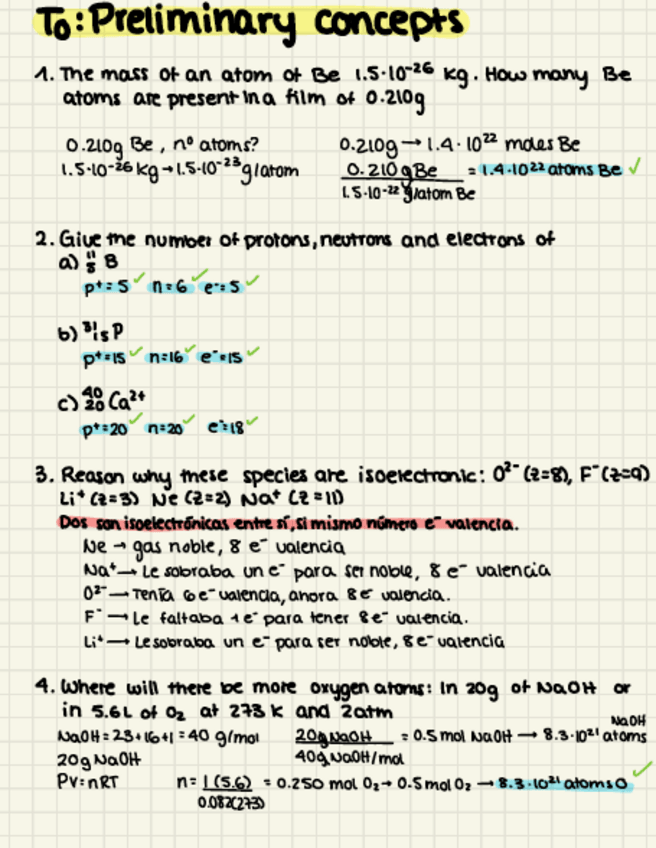 T₀: Preliminary concepts
1. The mass of an atom of Be 1.5·10⁻²⁶ kg. How many Be
atoms are present in a film of 0.210g
0.210g Be, nº atoms?
1.5·10⁻²⁶ Kg → 1.5·10⁻²³ g/atom
0.210g → 1.4·10²² moles Be
0.210 g Be = 1.4·10²² atoms Be ✓
1.5·10⁻²² g/atom Be
2. Give the number of protons, neutrons and electrons of
a) ¹¹₅ B
p⁺= 5 ✓ n=6 ✓ e⁻= 5 ✓
b) ³¹₁₅ P
p⁺=15 ✓ n=16 ✓ e⁻=15 ✓
c) ⁴⁰₂₀ Ca²⁺
p⁺=20 ✓ n=20 ✓ e⁻=18 ✓
3. Reason why these species are isoelectronic: O²⁻ (z=8), F⁻ (z=9)
Li⁺ (z=3) Ne (z=2) Na⁺ (z=11)
Dos son isoelectrónicas entre sí, si mismo número e⁻ valencia.
Ne → gas noble, 8 e⁻ valencia
Na⁺ → Le sobraba un e⁻ para ser noble, 8 e⁻ valencia
O²⁻ → Tenía 6 e⁻ valencia, ahora 8 e⁻ valencia.
F⁻ → Le faltaba 1 e⁻ para tener 8 e⁻ valencia.
Li⁺ → Le sobraba un e⁻ para ser noble, 8 e⁻ valencia
4. Where will there be more oxygen atoms: In 20g of NaOH or
in 5.6L of O₂ at 273 K and 2atm
NaOH = 23+16+1 = 40 g/mol
20g NaOH
20g NaOH = 0.5 mol NaOH → 8.3·10²¹ atoms NaOH
40g NaOH/mol
PV=nRT
n = 1(5.6) = 0.250 mol O₂ → 0.5 mol O₂ → 8.3·10²¹ atoms O ✓
0.082(273)